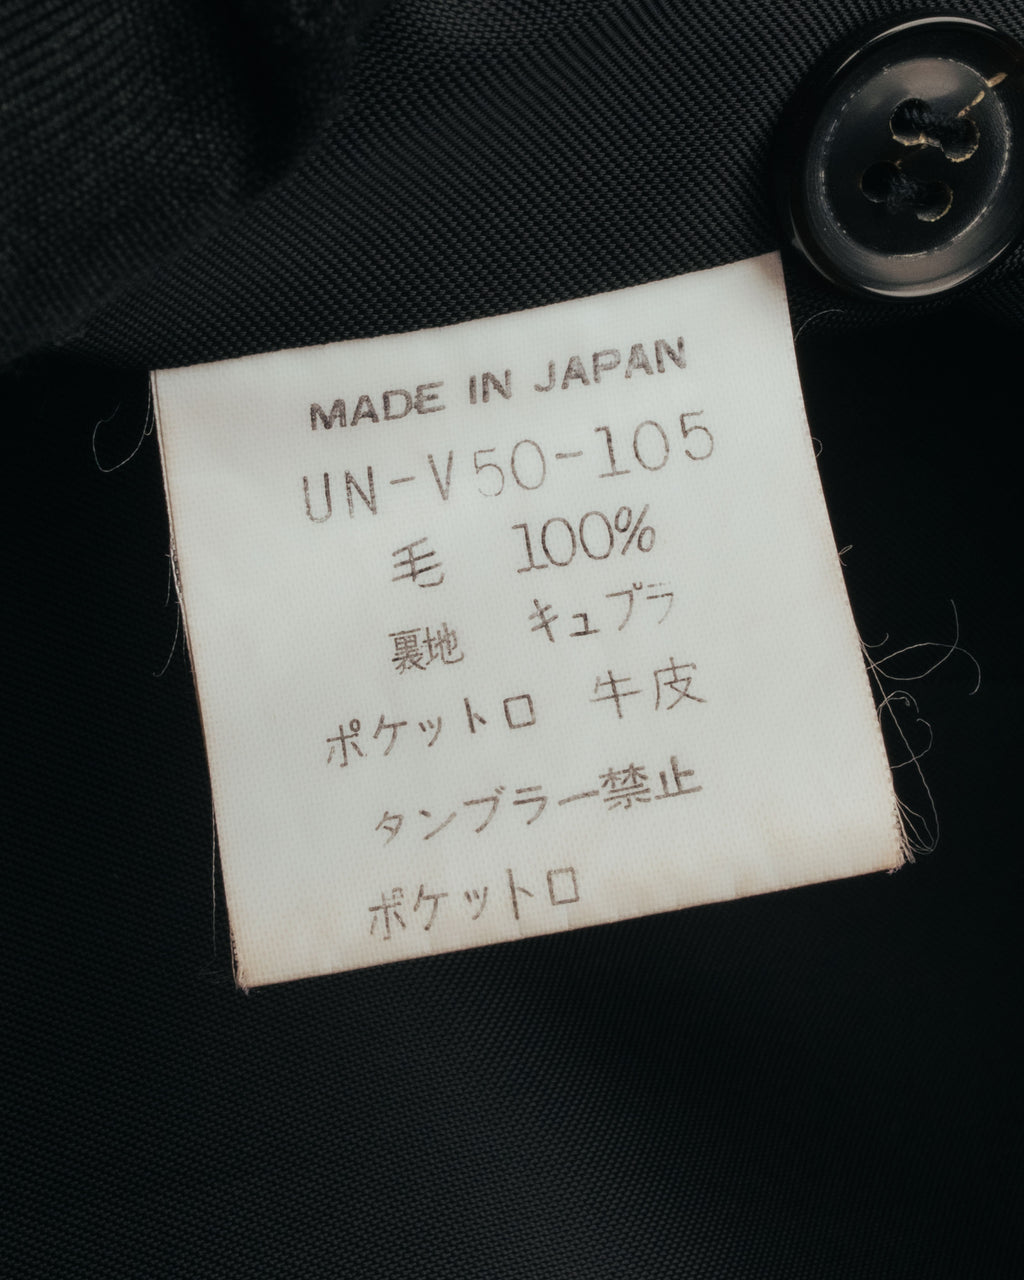 MADE IN JAPAN
UN-V50-105
毛 100%
裏地 キュプラ
ポケット口 牛皮
タンブラー禁止
ポケット口